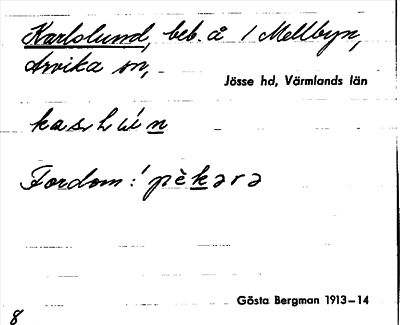 Karlslund, beb. å 1 Mellbyn,
Arvika sn,
Jösse hd, Värmlands län
Fordom:
Gösta Bergman 1913–14
8